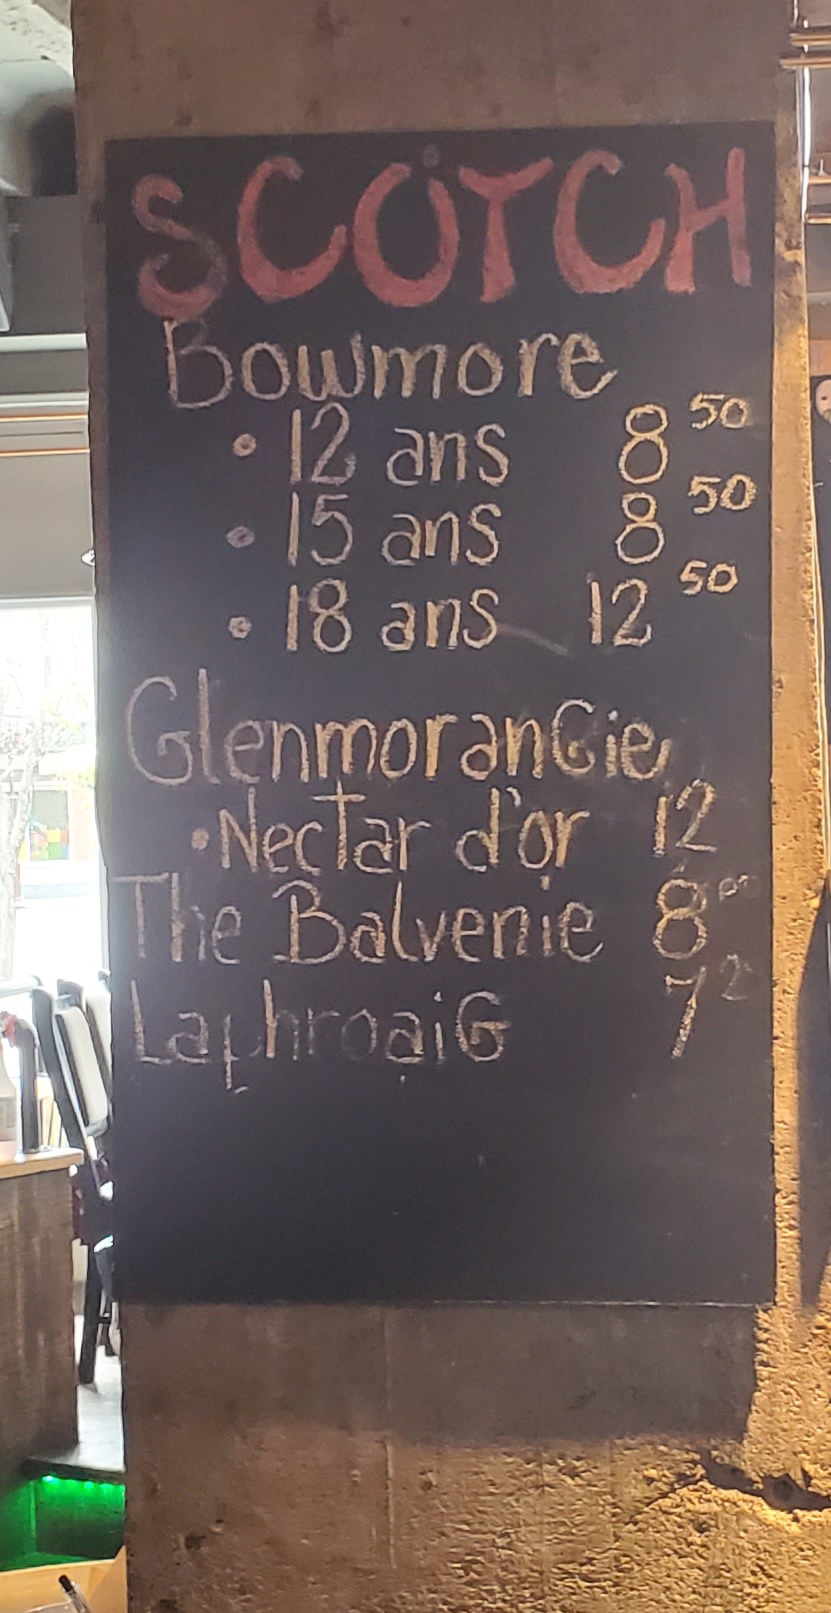 SCOTCH
Bowmore
• 12 ans 8 50
• 15 ans 8 50
• 18 ans 12 50
GlenmoranGie
• NecTar d'or 12
The Balvenie 8
LaphroaiG 7